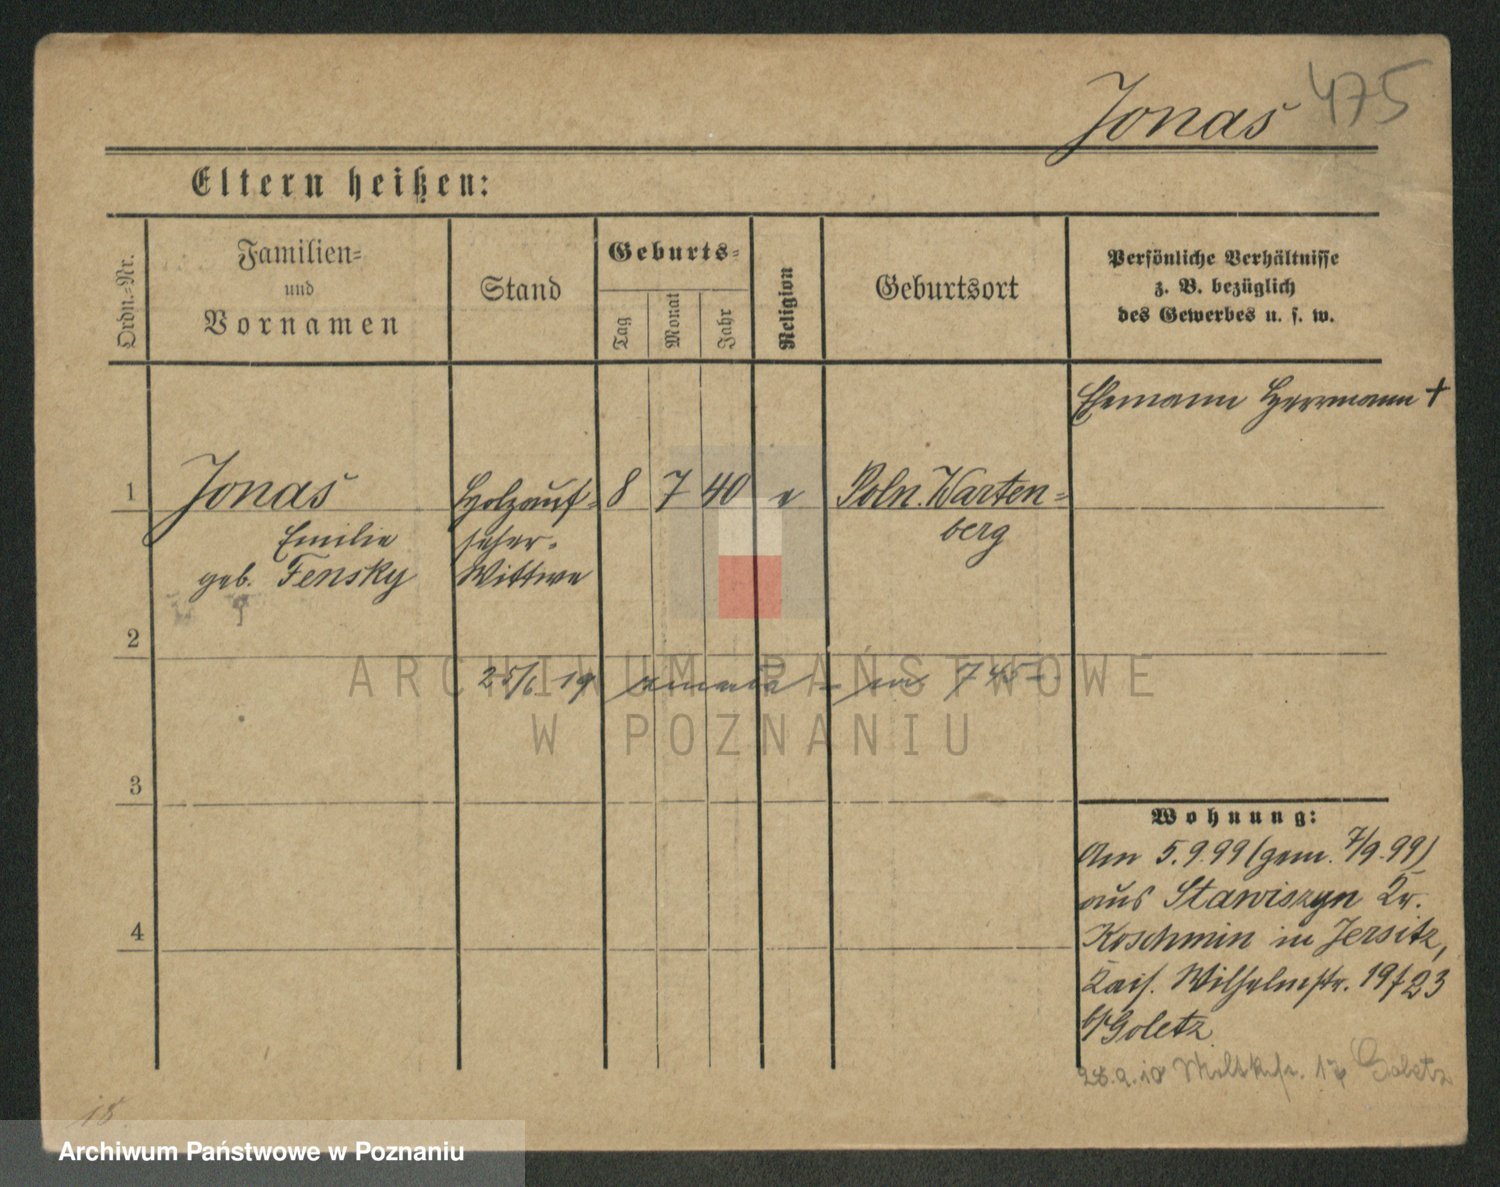 Jonas 475
Eltern heißen:
Ordn.-Nr.
Familien-
und
Vornamen
Stand
Geburts-
Tag
Monat
Jahr
Religion
Geburtsort
Persönliche Verhältnisse
z. B. bezüglich
des Gewerbes u. s. w.
Ehemann Herrmann +
1 Jonas Holzauf- 8 7 40 e Poln. Warten-
Emilie seher- berg
geb. Fensky Wittwe
2
25/6 19 745
ARCHIWUM PAŃSTWOWE
W POZNANIU
3
Wohnung:
Am 5.9.99 (gem. 7/9.99)
aus Stawiszyn Kr.
4 Koschmin in Jersitz,
Kais. Wilhelmstr. 19/23
b/Goletz
28.9.10 Goletz
18
Archiwum Państwowe w Poznaniu